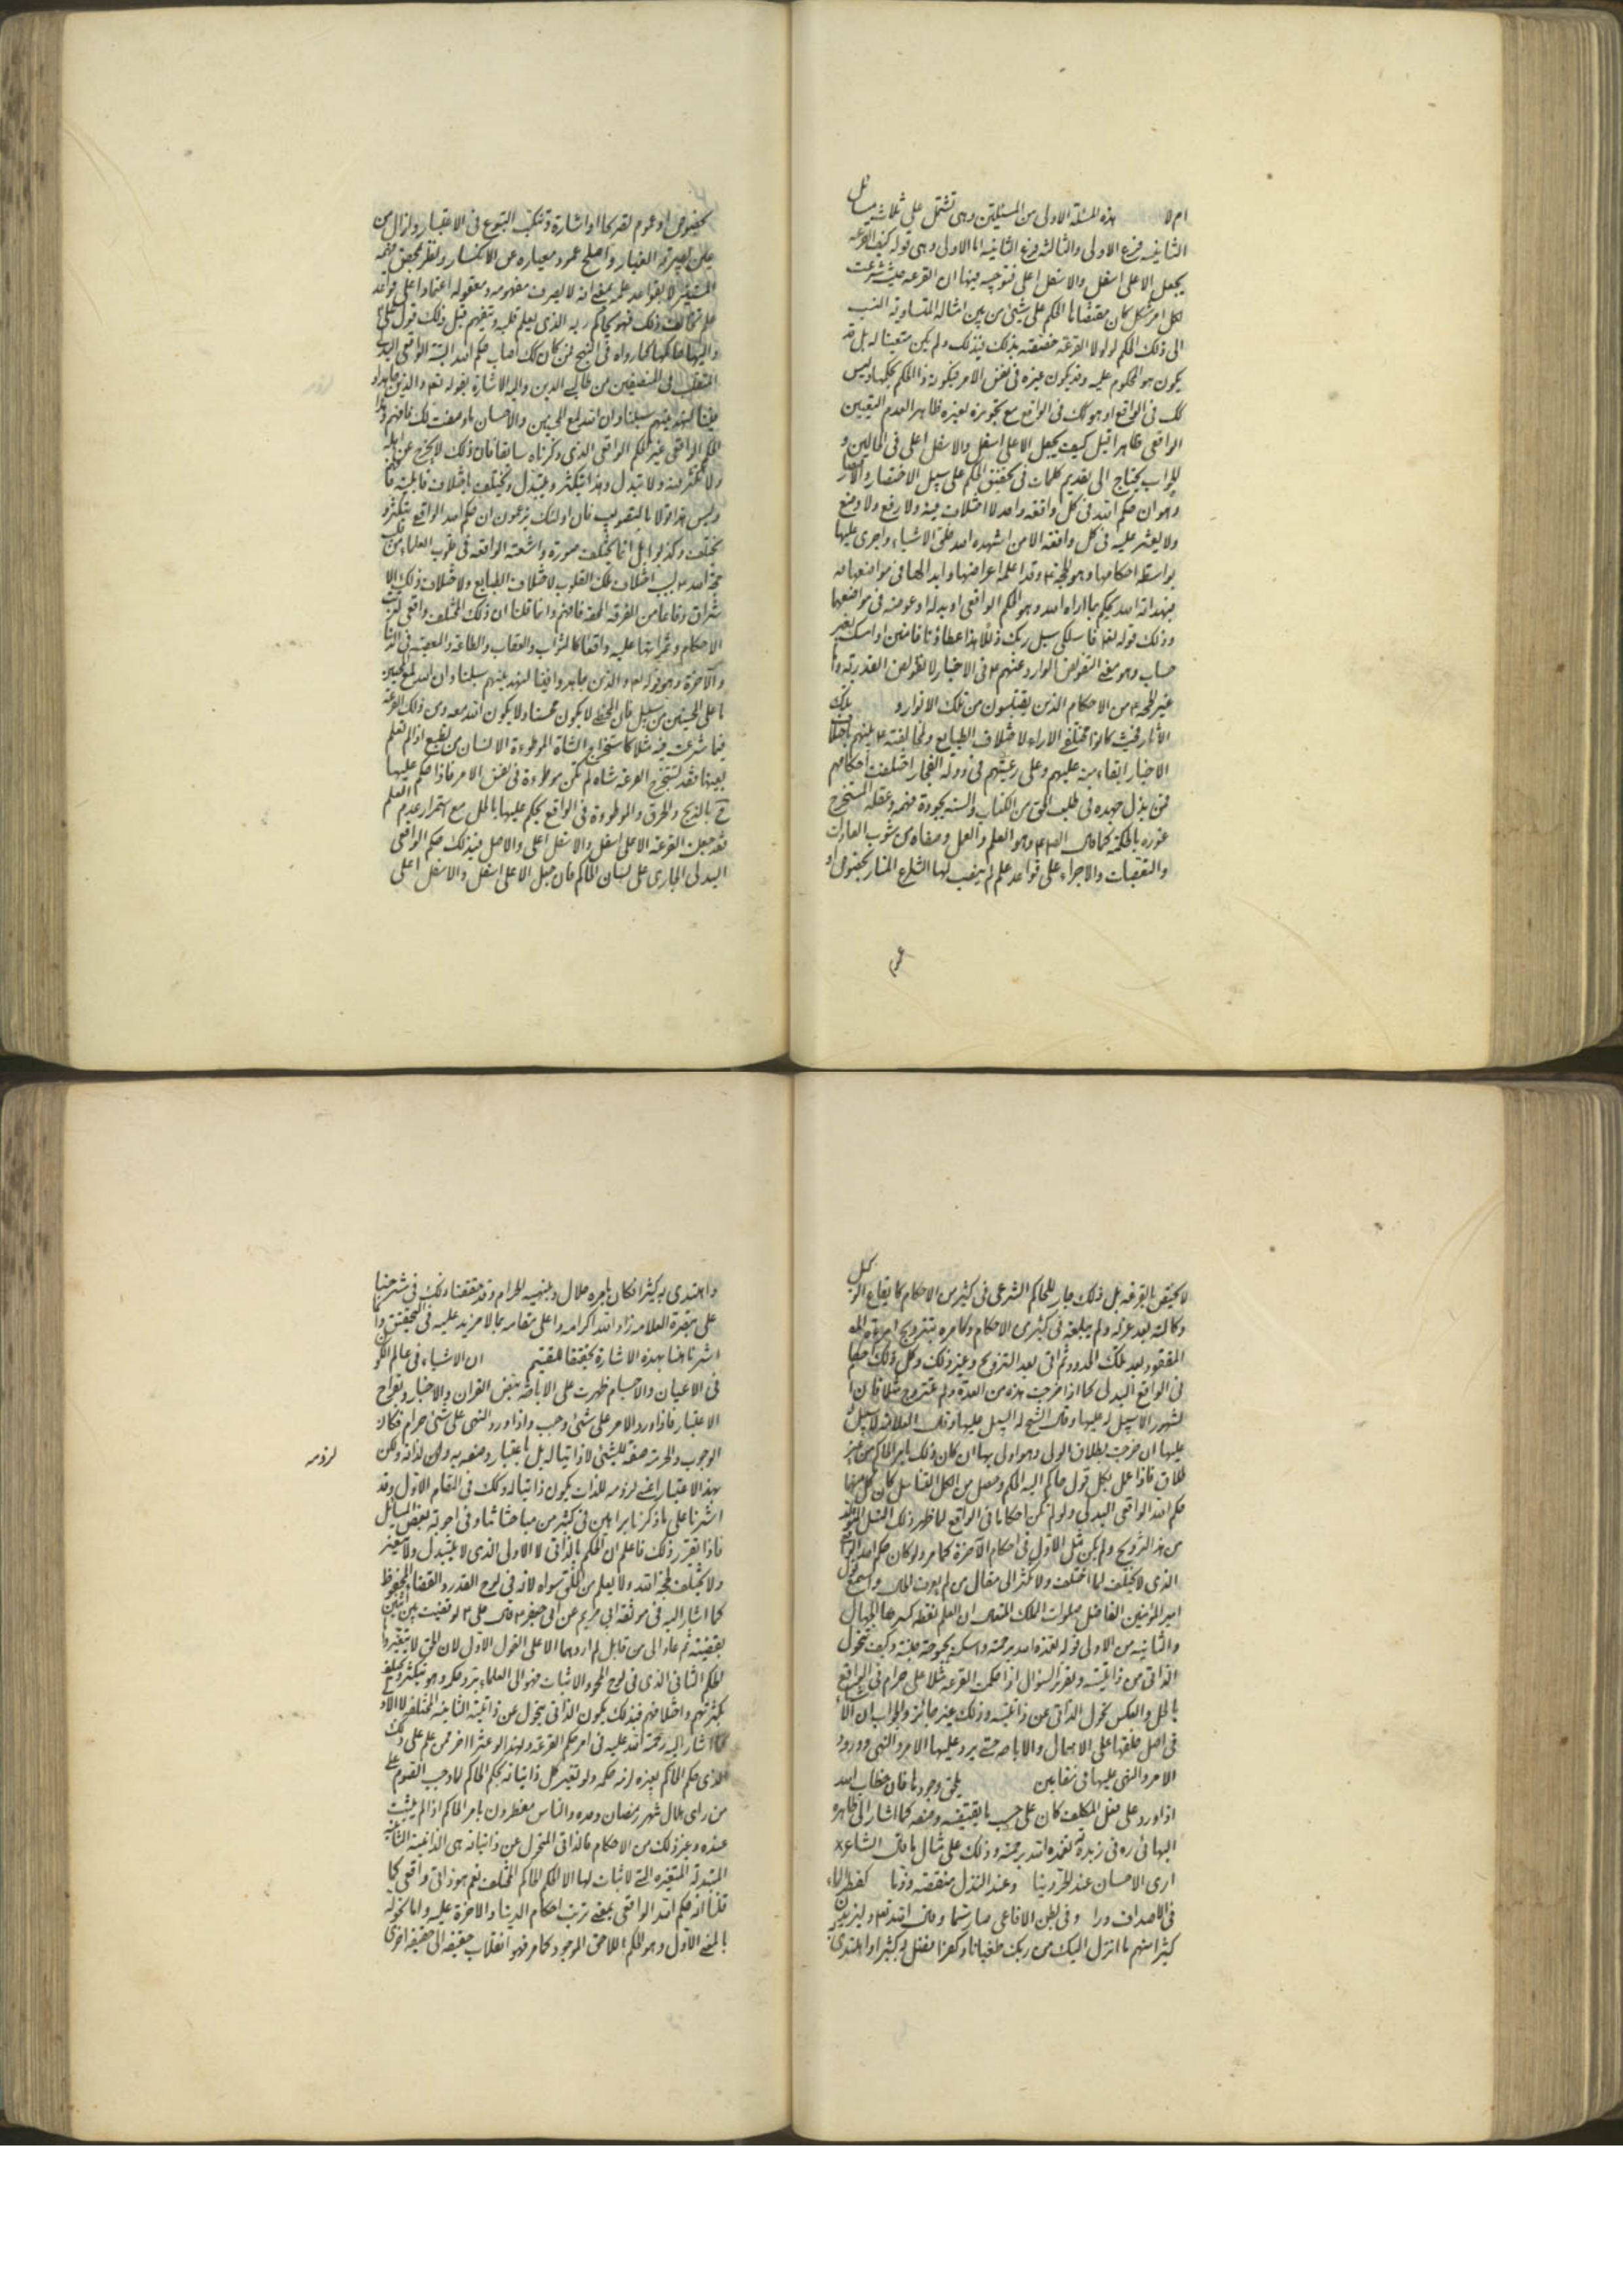 ام لا هذه المسئلة الاولى من المسئلتين وهى تشتمل على ثلاث مسائل
الثانية فرع الاولى والثالثة فرع الثانية اما الاولى وهى قوله كيف القرعة
يجعل الاعلى اسفل والاسفل اعلى فتوجيه فيها ان القرعة حيث شرعت
لكل امر مشكل كان مقتضاها الحكم على شىء من بين امثاله المتساوية النسب
الى ذلك الحكم لولا القرعة خصصته بذلك فبذلك ولم يكن متعينا له بل قد
يكون هو المحكوم عليه وقد يكون غيره فى نفس الامر فيكون ذا الحكم بحكمها وليس
كك فى الواقع او هو كك فى الواقع مع تجويزه لغيره ظاهرا لعدم التعيين
الواقعى ظاهرا قيل كيف يجعل الاعلى اسفل والاسفل اعلى فى الحالين و
الجواب يحتاج الى تقديم كلمات فى تحقيق الحكم على سبيل الاختصار والاشارة
وهو ان حكم الله فى كل واقعة واحد لا اختلاف فيه ولا رفع ولا وضع
ولا يعثر عليه فى كل واقعة الا من اشهده الله خلق الاشياء واجرى عليها
بواسطة احكامها وهو الحجة ع وقد اعلمه اعراضها وابدالها فى مواضعها فه
فبهداية الله يحكم بما اراه الله وهو الحكم الواقعى او بدله او عوضه فى مواضعها
وذلك قوله تعالى فاسلكى سبل ربك ذللا هذا عطاؤنا فامنن او امسك بغير
حساب وهو معنى التفويض الوارد عنهم ع فى الاخبار
غير الحجة ع من الاحكام الذين يقتبسون من تلك الانوار و تلك
الآثار فحيث كانوا مختلفى الآراء لاختلاف الطبايع ولمخالفته ع بينهم باختلاف
الاخبار ابقاء منه عليهم وعلى رعيتهم فى دولة الفجار اختلفت احكامهم
فمن بذل جهده فى طلب الحق من الكتاب والسنة بجودة فهمه وعقله المستخرج
غوره بالحكمة كما قال ع وهو العلم والعمل وصفاه من شوب العادات
والتعصبات والاجراء على قواعد علم لم ينصب لها الشارع المنار بخصوص او
عموم
بخصوص او عموم تصريحا او اشارة وتنكب التبوع فى الاعتبار وازال من
عين بصيرته الغبار واصلح عمود معياره عن الانكسار ونظر بمحض فهمه
المستنير لا بقواعد علمه بمعنى انه لا يصرف مفهومه ومعقوله اعتمادا على قواعد
علم تخالف ذلك فهو يحاكم ربه الذى يعلم قلبه وتفهم قبل ذلك قول على ع
والله الحق كما رواه فى النهج فمن كان كك اصاب حكم الله البتة الواقعى البدلى
عن المنصفين من طالبى الدين واليه الاشارة بقوله تعالى والذين جاهدوا
فينا لنهدينهم سبلنا وان الله لمع المحسنين والاحسان ما وصفت لك فافهم وهذا
الحكم الواقعى غير الحكم الواقعى الذى ذكرناه سابقا فان ذلك لا يخرج عن اهله
ولا تكثر فيه ولا تبدل وهذا يتكثر ويتبدل ويختلف باختلاف قابليته
وليس هذا قولا بالتصويب فان اولئك يزعمون ان حكم الله الواقعى يتكثر و
يختلف وكذبوا بل انما تختلف صورة واشعته الواقعة فى قلوب العلماء من
حجة الله ع بسبب اختلاف تلك القلوب لاختلاف الطبايع ولاختلاف ذلك الا
شراق دفاعا من الفرقة المحقة فافهم وانما قلنا ان ذلك المختلف واقعى لترتب
الاحكام وثمراتها عليه واقعا كالثواب والعقاب والطاعة والمعصية فى الدنيا
والآخرة وهو قوله تعالى والذين جاهدوا فينا لنهدينهم سبلنا وان الله لمع المحسنين
ما على المحسنين من سبيل فان المخطئ لا يكون محسنا ولا يكون الله معه ومن ذلك القرعة
فيما شرعت فيه مثلا كاستخراج الشاة الموطوءة الانسان من قطيع اذا لم تعلم
بعينها فقد تستخرج القرعة شاة لم تكن موطوءة فى نفس الامر فاذا حكم عليها
ح بالذبح والحرق والموطوءة فى الواقع يحكم عليها بالحل مع استمرار عدم العلم
فقد جعلت القرعة الاعلى اسفل والاسفل اعلى والاصل فيه ذلك حكم الواقعى
البدلى الجارى على لسان الحاكم فان جعل الاعلى اسفل والاسفل اعلى
لا يختص بالقرعة بل ذلك جار للحاكم الشرعى فى كثير من الاحكام كايقاع الوكيل
وكالته بعد عزله ولم يبلغه فى كثير من الاحكام وكامره بتزويج امرأة
المفقود بعد تلك الحدود ثم اتى بعد التزويج وغير ذلك وكل ذلك حكم
فى الواقع البدلى كما اذا خرجت هذه من العدة ولم تتزوج مثلا فان
المشهور الا سبيل له عليها وقال الشيخ له السبيل عليها وقال العلامة لا سبيل له
عليها ان خرجت بطلاق الولى وهو اولى بها ان كان ذلك بامر الحاكم من غير
طلاق فاذا عمل بكل قول حاكم اليه الحكم وحصل من الكل التناسل كان كل منها
حكم الله الواقعى البدلى ولو لم تكن احكاما فى الواقع لما ظهر ذلك النسل
من هذا التزويج ولم يكن مثل الاول فى احكام الآخرة كما مر ولو كان حكم الله الواقعى
الذى لا يختلف لما اختلف ولا تكثر الى مقال من لم يعرف الحال واسمع قول
امير المؤمنين الفاضل صلوات الملك المتعال ان العلم نقطة كثرها الجهال
والثانية من الاولى قوله تغمده الله برحمته واسكنه بحبوحة جنته وكيف يتحول
الذاتى من ذاتيته وتقرير السؤال اذا حكمت القرعة مثلا على حرام فى الواقع
بالحل والعكس تحول الذاتى عن ذاتيته وذلك غير جائز والجواب ان الاشياء
فى اصل خلقها على الاهمال والاباحة حتى يرد عليها الامر والنهى وورود
الامر والنهى عليها فى مقامين يلحق وجودها فان خطاب الله
اذا ورد على فعل المكلف كان على حسب ما يقتضيه وصفه كما اشار الى ظاهره
البهائى ره فى زبدته تغمده الله برحمته وذلك على مثال ما قال الشاعر
ارى الاحسان عند الحر دينا وعند النذل منقصة وذما كقطر الماء
فى الاصداف درا وفى بطن الافاعى صار سما وقال الله تعالى وليزيدن
كثيرا منهم ما انزل اليك من ربك طغيانا وكفرا فضل به كثير او اهتدى
واهتدى به كثيرا فكان يامره حلال ونهيه الحرام وقد حققنا ذلك فى شرحنا
على تبصرة العلامة زاد الله اكرامه واعلى مقامه بما لا مزيد عليه فى التحقيق وانما
اشرنا هنا بهذه الاشارة تحقيقا للقيم ان الاشياء فى عالم الكون
فى الاعيان والاجسام ظهرت على الاباحة بنص القران والاخبار وبقراح
الاعتبار فاذا ورد الامر على شىء وجب واذا ورد النهى على شىء حرام فكان
الوجوب والحرمة صفة للشىء لا ذاتيا له بل باعتبار وصفه به ولحق لذاته ولكن
بهذا الاعتبار اعنى لزومه للذات يكون ذاتيا له وكك فى المقام الاول وقد
لزومه
اشرنا على ما ذكرنا براهين فى كثير من مباحثاتنا وفى اجوبة بعض المسائل
فاذا تقرر ذلك فاعلم ان الحكم بالذاتى لا الاولى الذى لا يتبدل ولا يتغير
ولا يختلف لحجة الله ولا يعلم من الخلق سواه لانه فى لوح القدر والقضاء المحفوظ
كما اشار اليه فى موثقة ابى مريم عن ابى جعفر ع قال على ع لو قضيت بين اثنين
بقضية ثم عادا الى من قابل لم ازدهما الا على القول الاول لان الحق لا يتغير واما
الحكم الثانى الذى فى لوح المحو والاثبات فهو الى العلماء يتردد حكمه وهو يتكثر ويختلف
بكثرتهم واختلافهم فبذلك يكون الذاتى يتحول عن ذاتيته الثانية المختلفة لا الاولى
كما اشار اليه رحمة الله عليه فى امر حكم القرعة ولهذا لو عثر الآخر ممن علم على ذلك
الذى حكم الحاكم بغيره لزمه حكمه ولو تغير كل ذاتياته بحكم الحاكم لما وجب الصوم على
من راى هلال شهر رمضان وحده والناس مفطرون بامر الحاكم اذا لم يثبت
عنده وغير ذلك من الاحكام فالذاتى المتحول عن ذاتياته هى الذاتية الثانية
المتبدلة المتغيرة التى لا ثبات لها الا لحكم الحاكم المختلف نعم هو ذاتى واقعى كما
قلنا انه حكم الله الواقعى بمعنى ترتب احكام الدنيا والآخرة عليه واما تحوله
بالمعنى الاول وهو الحكم اللاحق الموجود كما مر فهو انقلاب حقيقة الى حقيقة اخرى